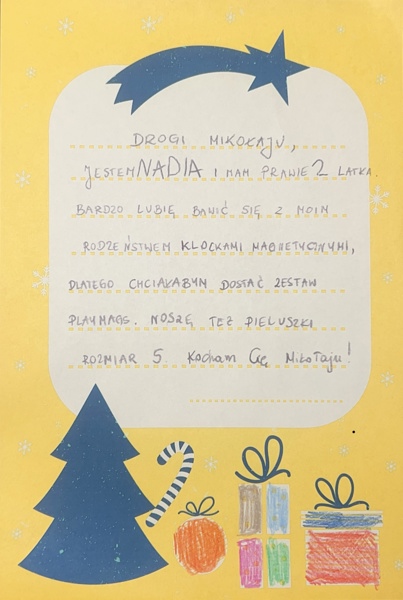 DROGI MIKOŁAJU,
JESTEM NADIA I MAM PRAWIE 2 LATKA.
BARDZO LUBIĘ BAWIĆ SIĘ Z MOIM
RODZEŃSTWEM KLOCKAMI MAGNETYCZNYMI,
DLATEGO CHCIAŁABYM DOSTAĆ ZESTAW
PLAYMAGS. NOSZĘ TEŻ PIELUSZKI
ROZMIAR 5. Kocham Cię Mikołaju!